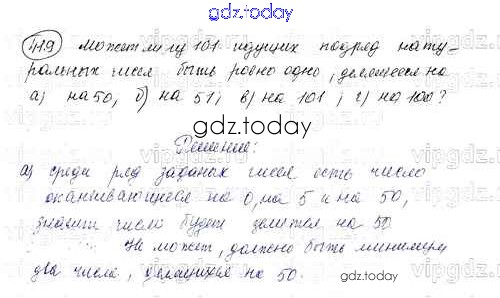 gdz.today
419 Может ли из 101 идущих подряд нату-
ральных чисел быть ровно одно, делящееся на
а) на 50, б) на 51; в) на 101; г) на 100?
gdz.today
Решение:
а) среди ряд заданых чисел есть число
оканчивающиеся на 0, на 5 и на 50,
значит число будет делится на 50
Не может, должно быть минимум
два числа, делящиеся на 50.
gdz.today